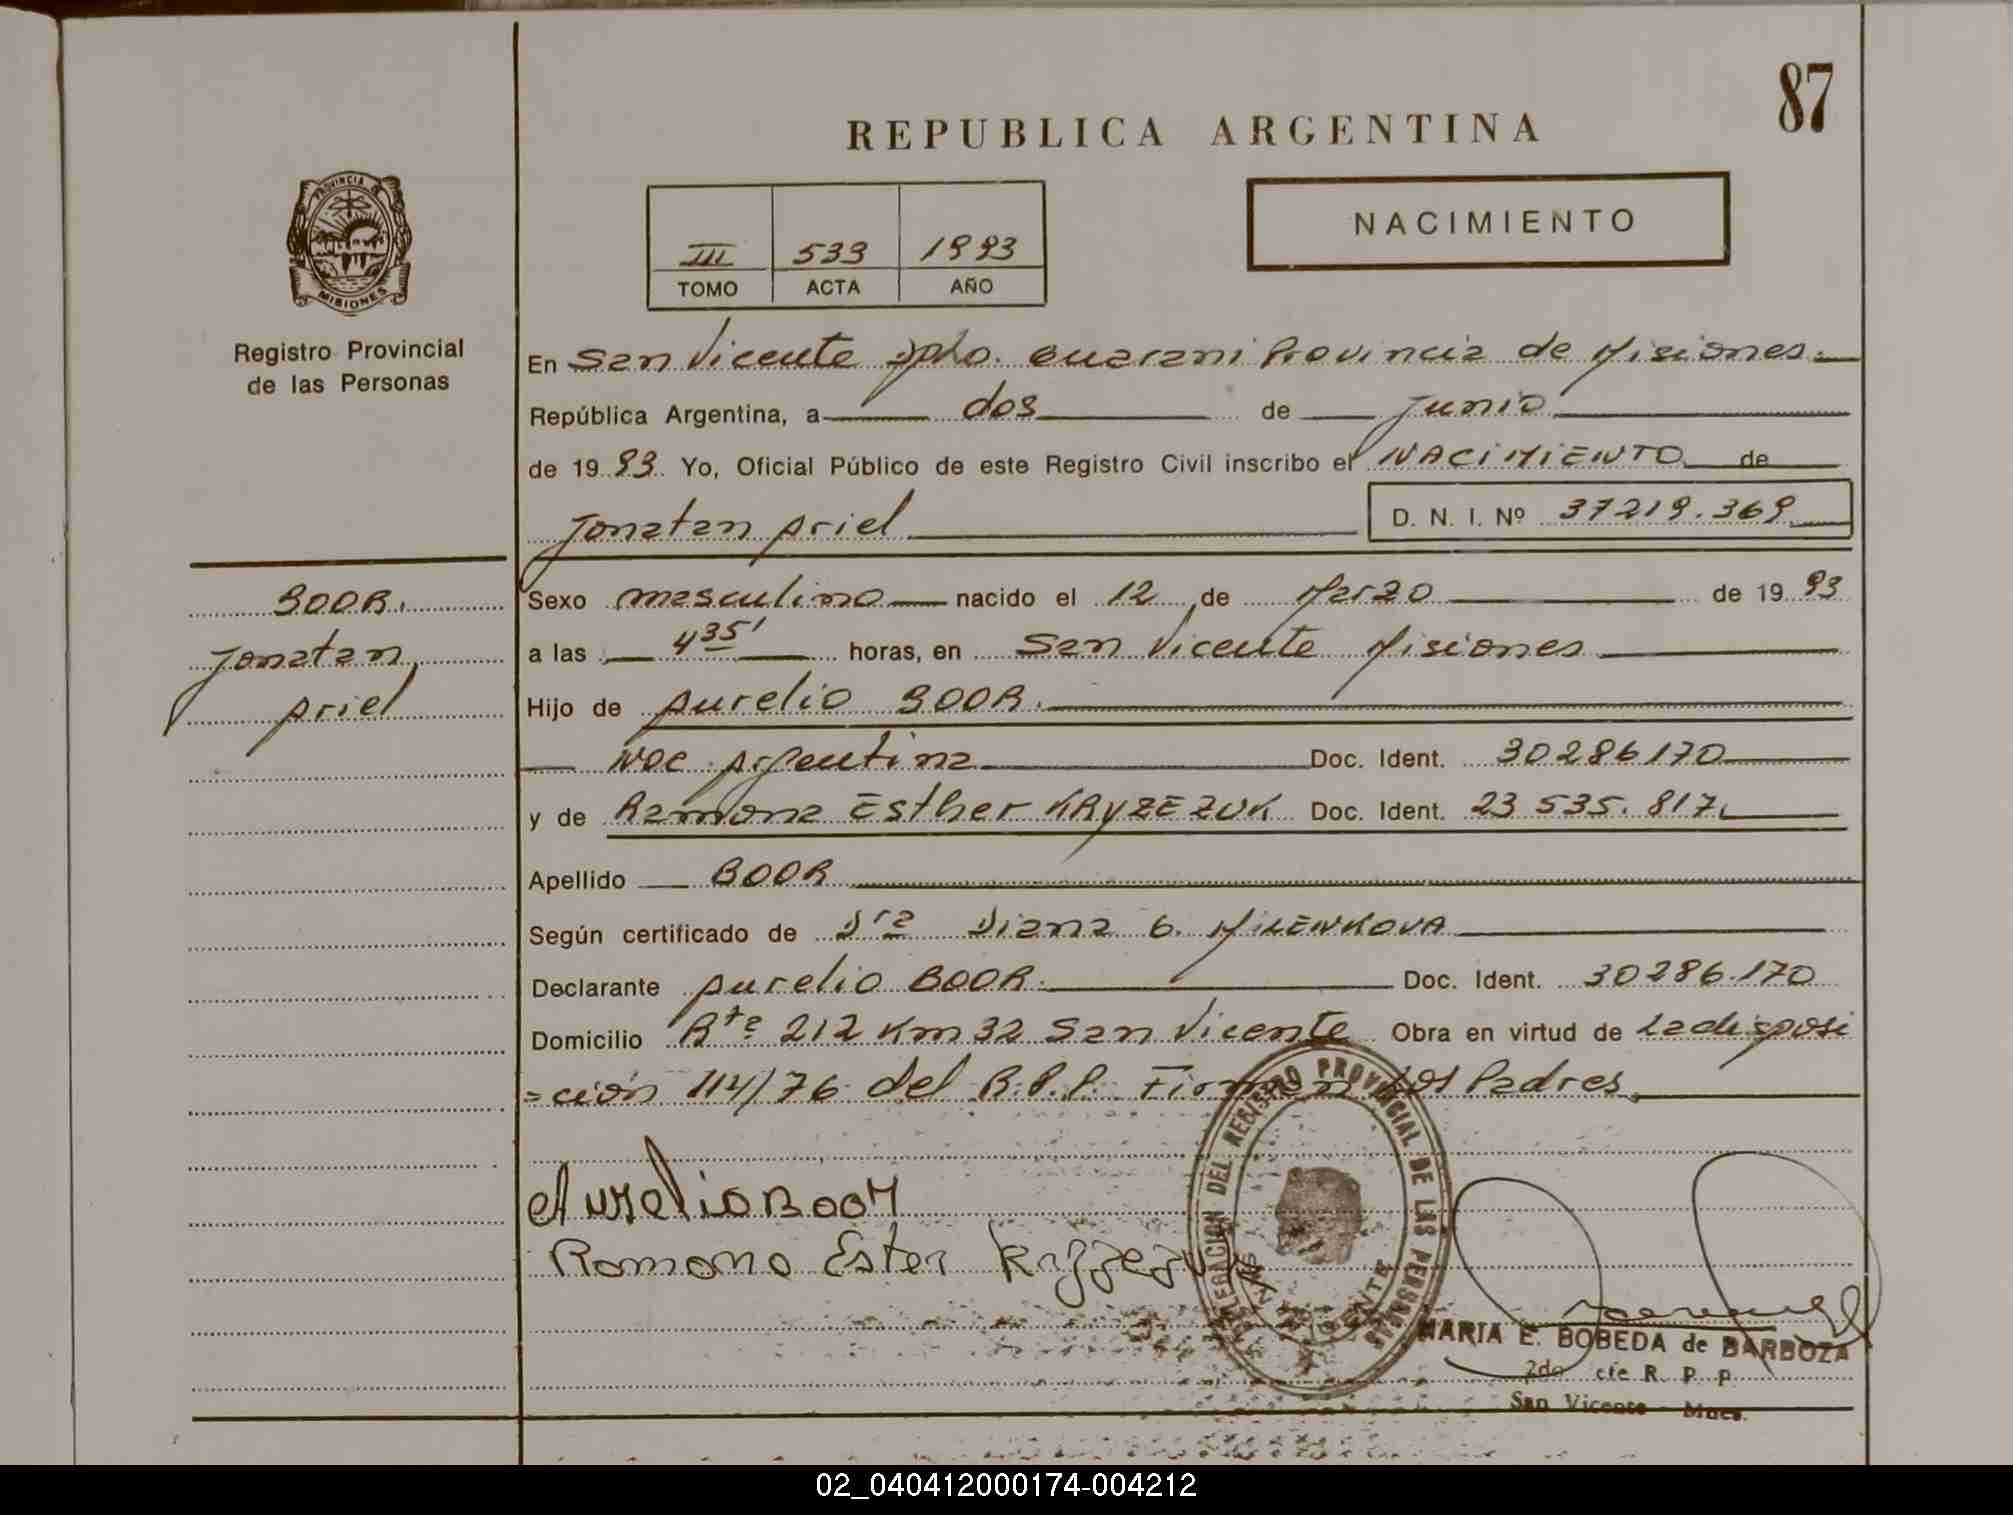 87
REPUBLICA ARGENTINA
NACIMIENTO
III 533 1993
TOMO ACTA AÑO
PROVINCIA DE
MISIONES
Registro Provincial
de las Personas
En San Vicente Dpto. Guarani Provincia de Misiones.
República Argentina, a dos de Junio
de 1993. Yo, Oficial Público de este Registro Civil inscribo el NACIMIENTO de
Jonatan Ariel D. N. I. Nº 37219.369
BOOR.
Jonatan
Ariel
Sexo masculino nacido el 12 de Marzo de 1993
a las 4 35' horas, en San Vicente Misiones
Hijo de Aurelio BOOR.
Nac. Argentina Doc. Ident. 30286170
y de Ramona Esther KRYZEZUK Doc. Ident. 23 535.817
Apellido BOOR
Según certificado de Dra Diana G. MILENKOVA
Declarante Aurelio BOOR. Doc. Ident. 30286.170
Domicilio Rta 212 Km 32 San Vicente Obra en virtud de la disposi
=ción 114/76 del R.P.P. Firman los Padres.
Aurelio Boor
Romona Ester
DELEGACION DEL REGISTRO PROVINCIAL DE LAS PERSONAS
MARIA E. BOBEDA de BARBOZA
2do cte R. P. P.
San Vicente - Mnes.
02_040412000174-004212